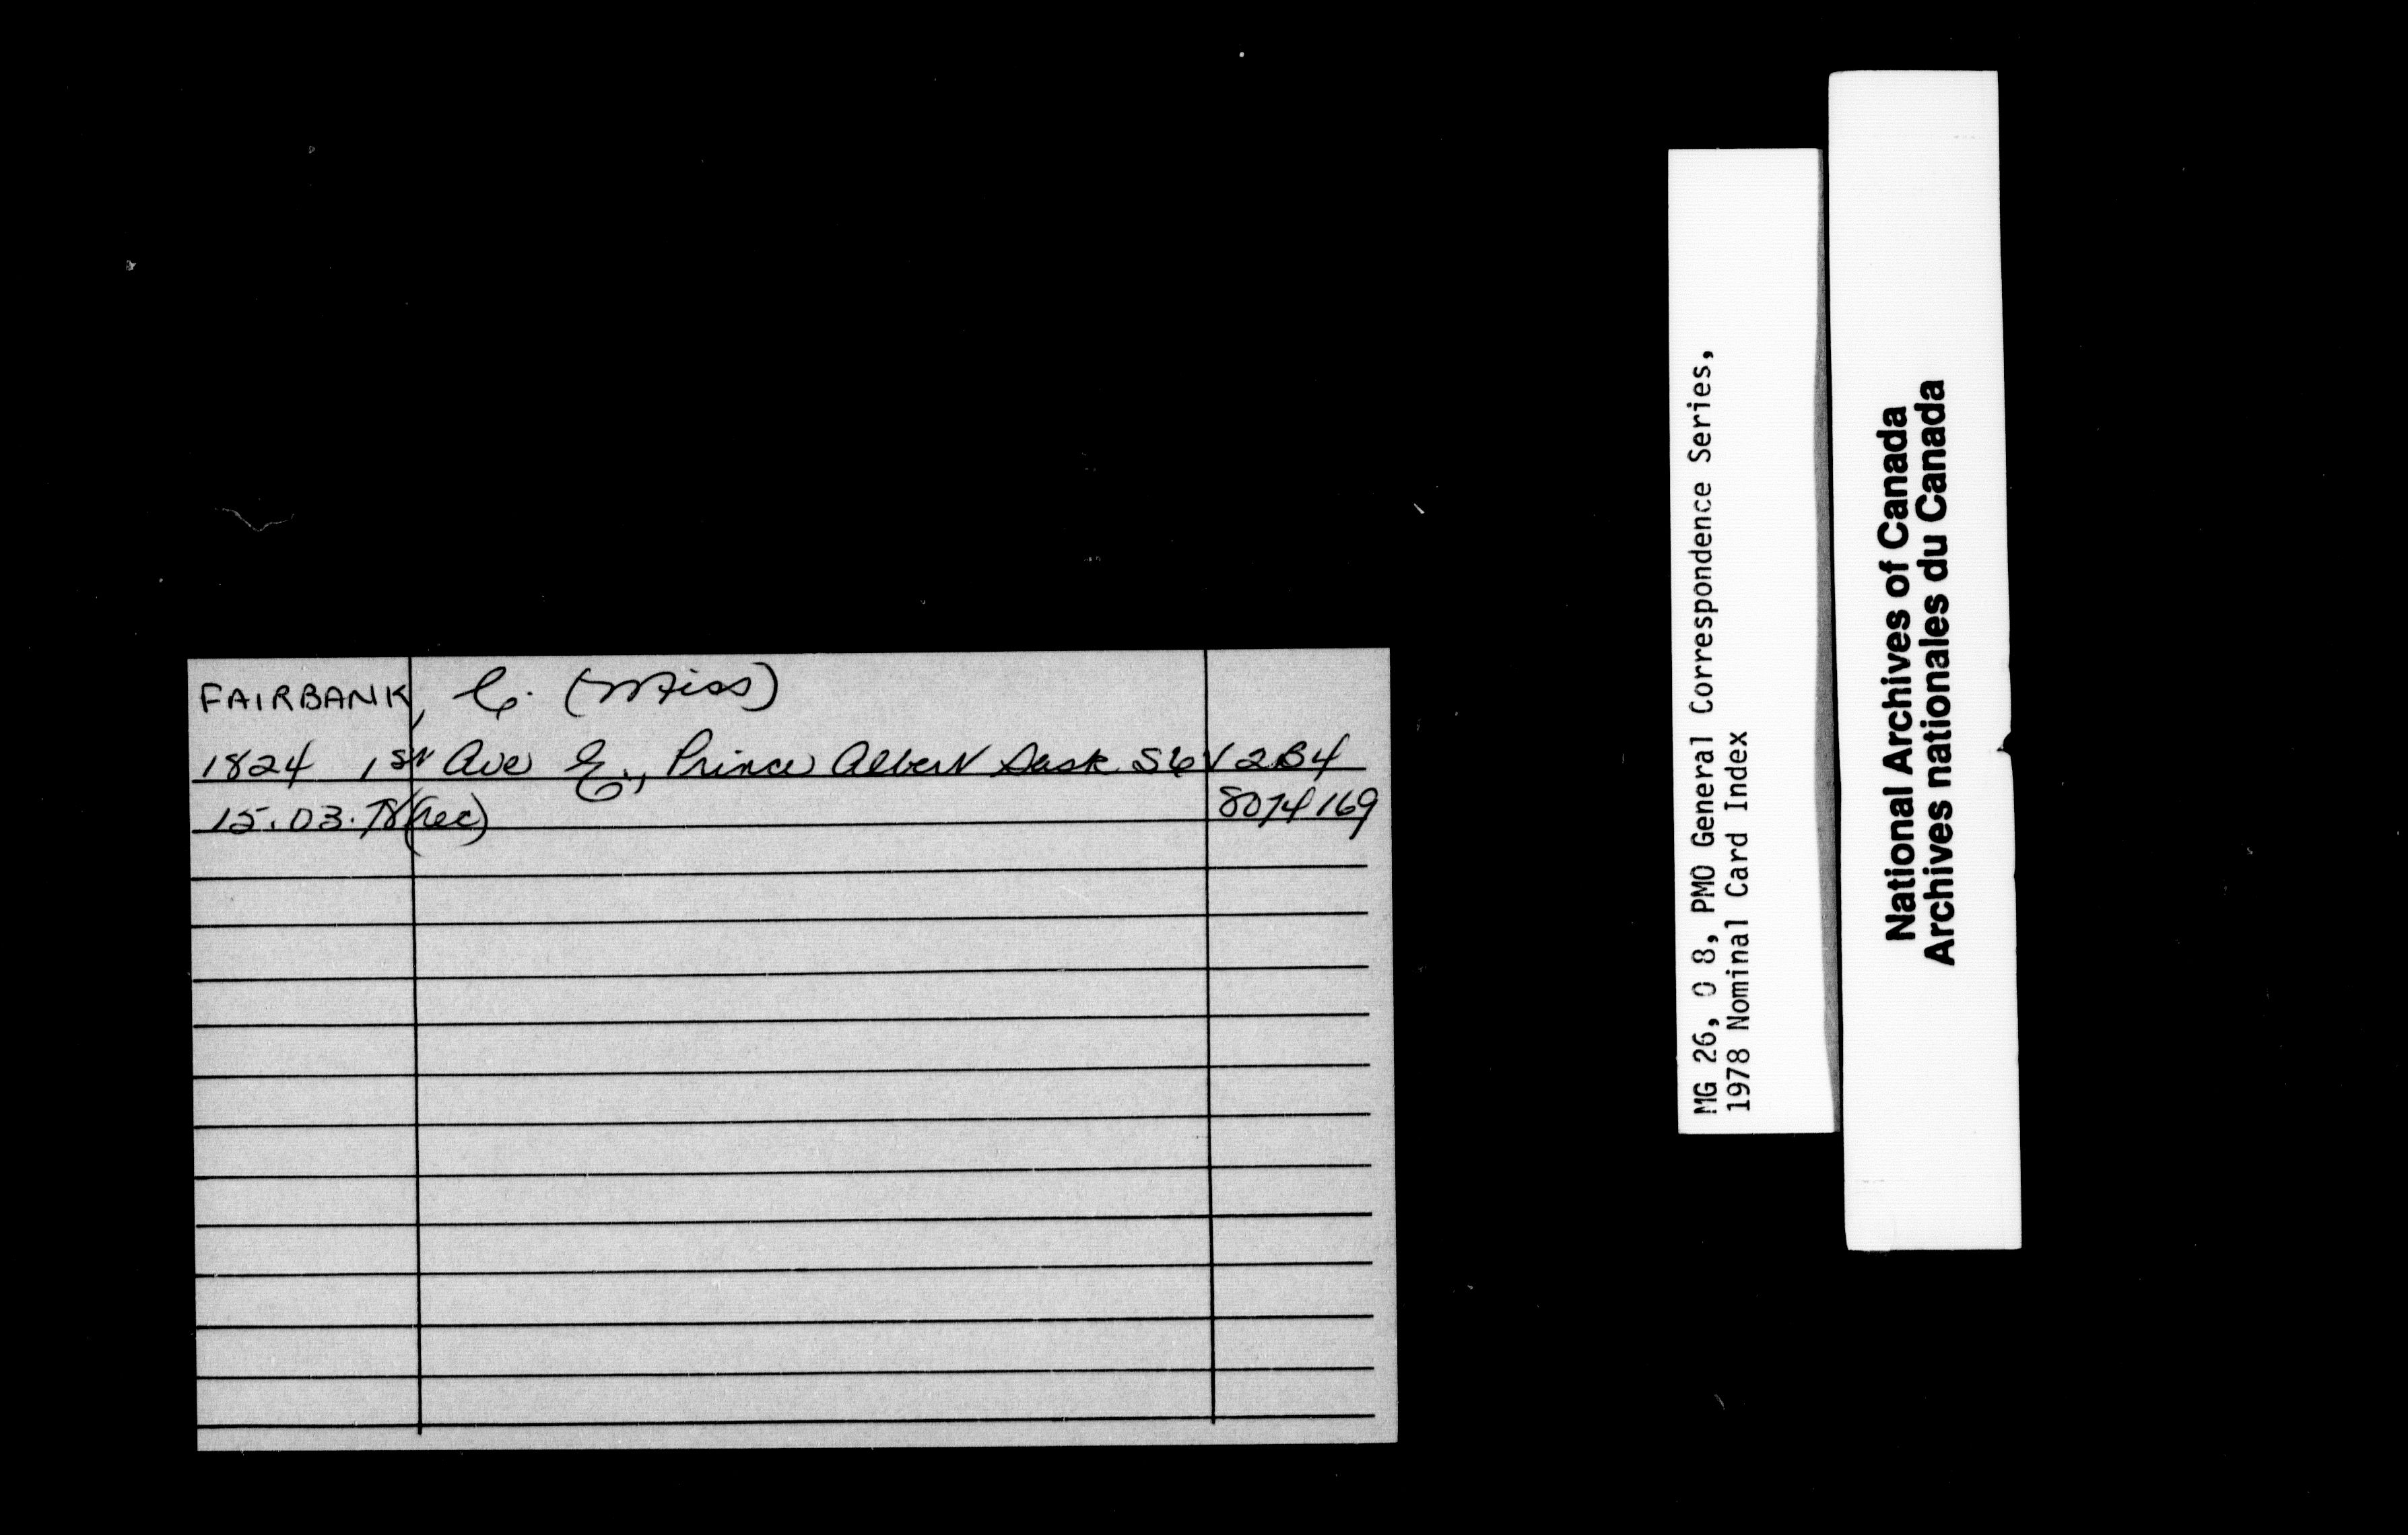 FAIRBANK, C. (Miss)
1824 1st Ave E., Prince Albert Sask S6V 2B4
15.03.78 (rec) 8074169
MG 26, O 8, PMO General Correspondence Series,
1978 Nominal Card Index
National Archives of Canada
Archives nationales du Canada